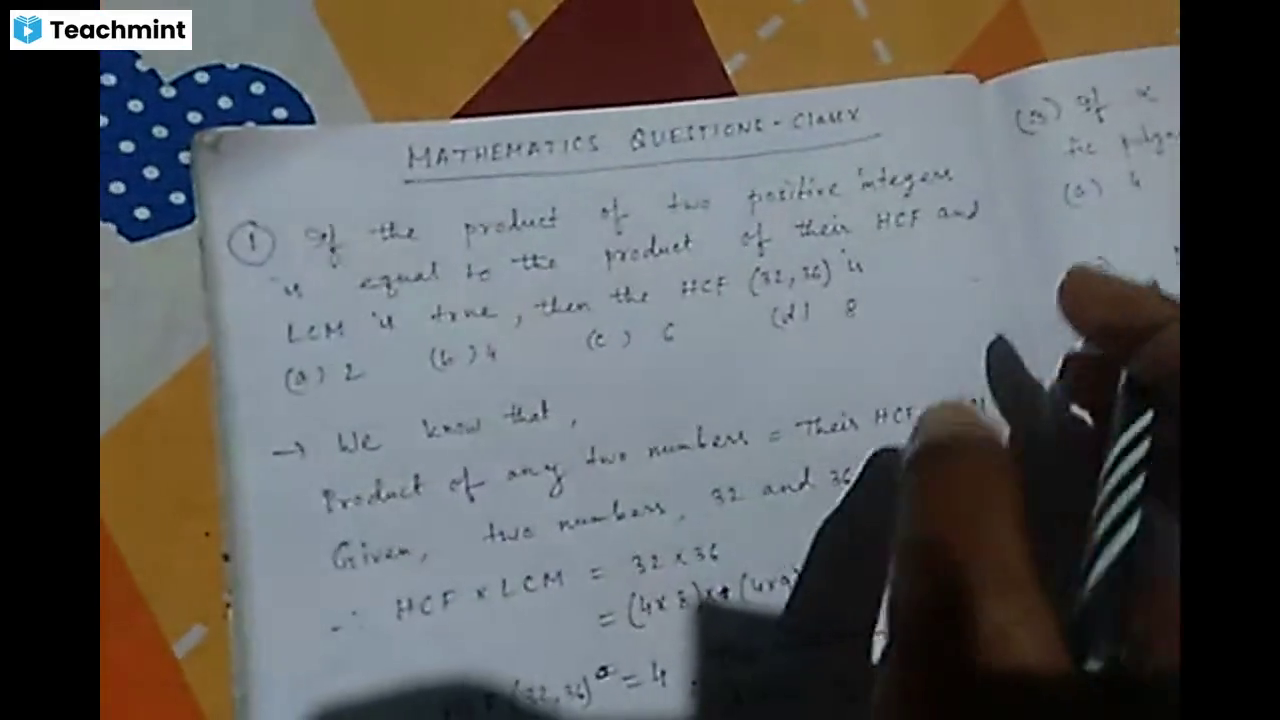 Teachmint
MATHEMATICS QUESTIONS - Class X
(1) If the product of two positive integers
is equal to the product of their HCF and
LCM is true, then the HCF (32,36) is
(a) 2 (b) 4 (c) 6 (d) 8
→ We know that,
Product of any two numbers = Their HCF
Given, two numbers, 32 and 36
∴ HCF × LCM = 32 × 36
= (4×8)× (4×9)
(32,36) = 4
(3) If x
tic polyn
(a) 4